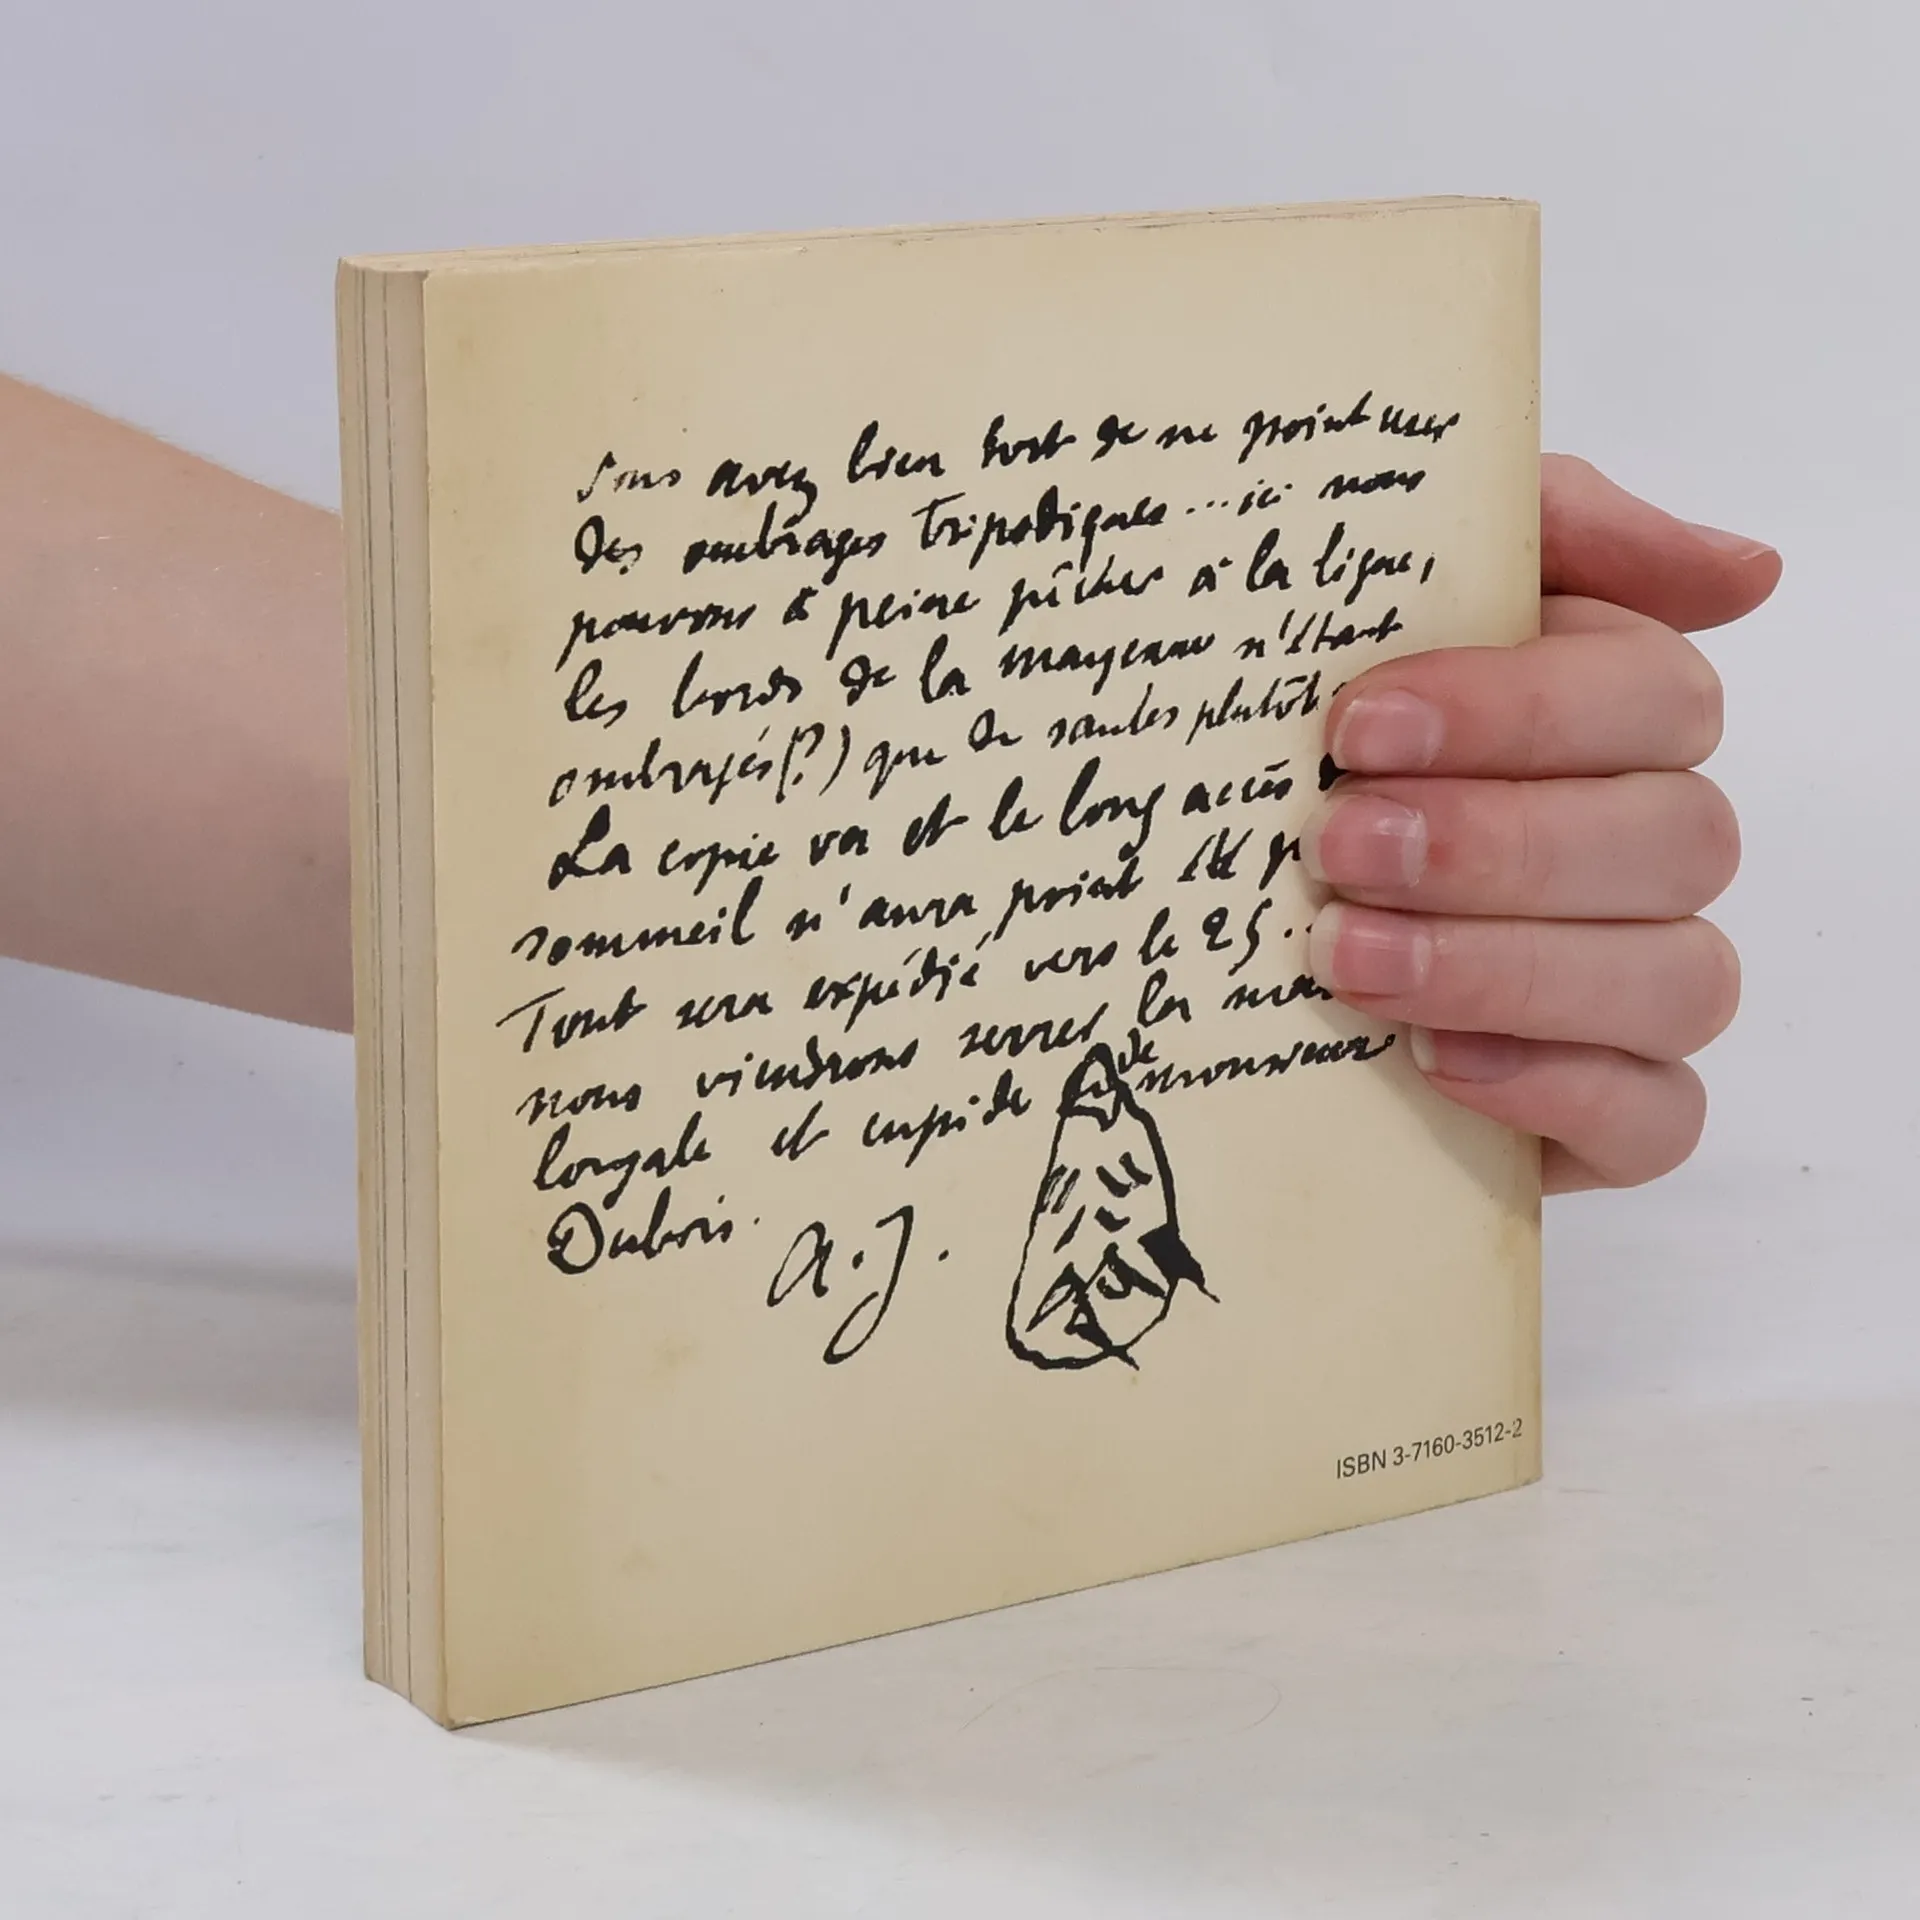 avez bien tort de ne point user
des ombrages Tripodiques... ici nous
pouvons à peine pêcher à la ligne,
les bords de la mayenne n'étant
ombragés(?) que de saules plutôt
La copie va et le long accès
sommeil n'aura point été
Tout sera expédié vers le 25..
nous viendrons serrer la
loyale et cupide de monsieur
Dubois.
A.J.
ISBN 3-7160-3512-2